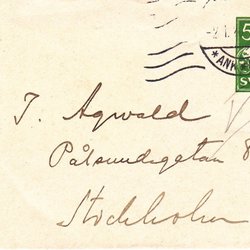 5
*ANK
SV
T. Agwald
Pålsundsgatan 8
Stockholm